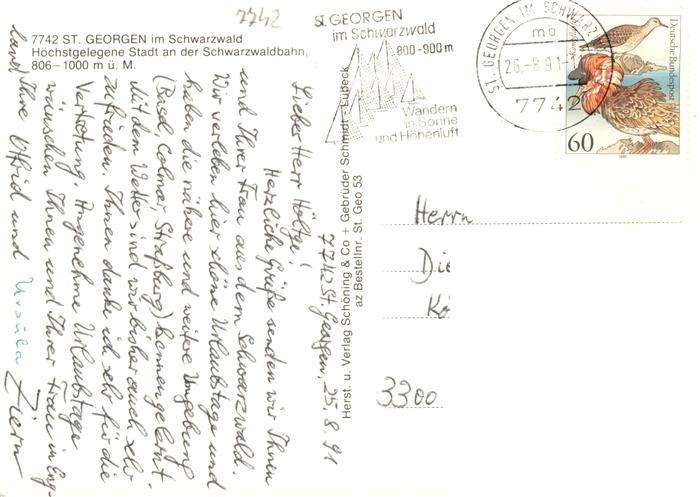 7742 ST. GEORGEN im Schwarzwald
Höchstgelegene Stadt an der Schwarzwaldbahn,
806–1000 m ü. M.
7742
ST. GEORGEN
im Schwarzwald
800-900 m
Wandern
in Sonne
und Höhenluft
ST. GEORGEN IM SCHWARZW
mb
26.-8.91-1
7742
Deutsche Bundespost
60
7742 St. Georgen, 25.8.91
Lieber Herr Höltge!
Herzliche Grüße senden wir Ihnen
und Ihrer Frau aus dem Schwarzwald.
Wir verleben hier schöne Urlaubstage und
haben die nähere und weitere Umgebung
(Basel, Colmar, Straßburg) kennengelernt.
Mit dem Wetter sind wir bisher auch sehr
zufrieden. Ihnen danke ich sehr für die
Vertretung. Angenehme Urlaubstage
wünschen Ihnen und Ihrer Frau in Eng-
land Ihre Otfrid und Ursula Ziern
Herst. u. Verlag Schöning & Co + Gebrüder Schmidt - Lübeck
az Bestellnr. St. Geo 53
Herrn
Die
Kö
3300